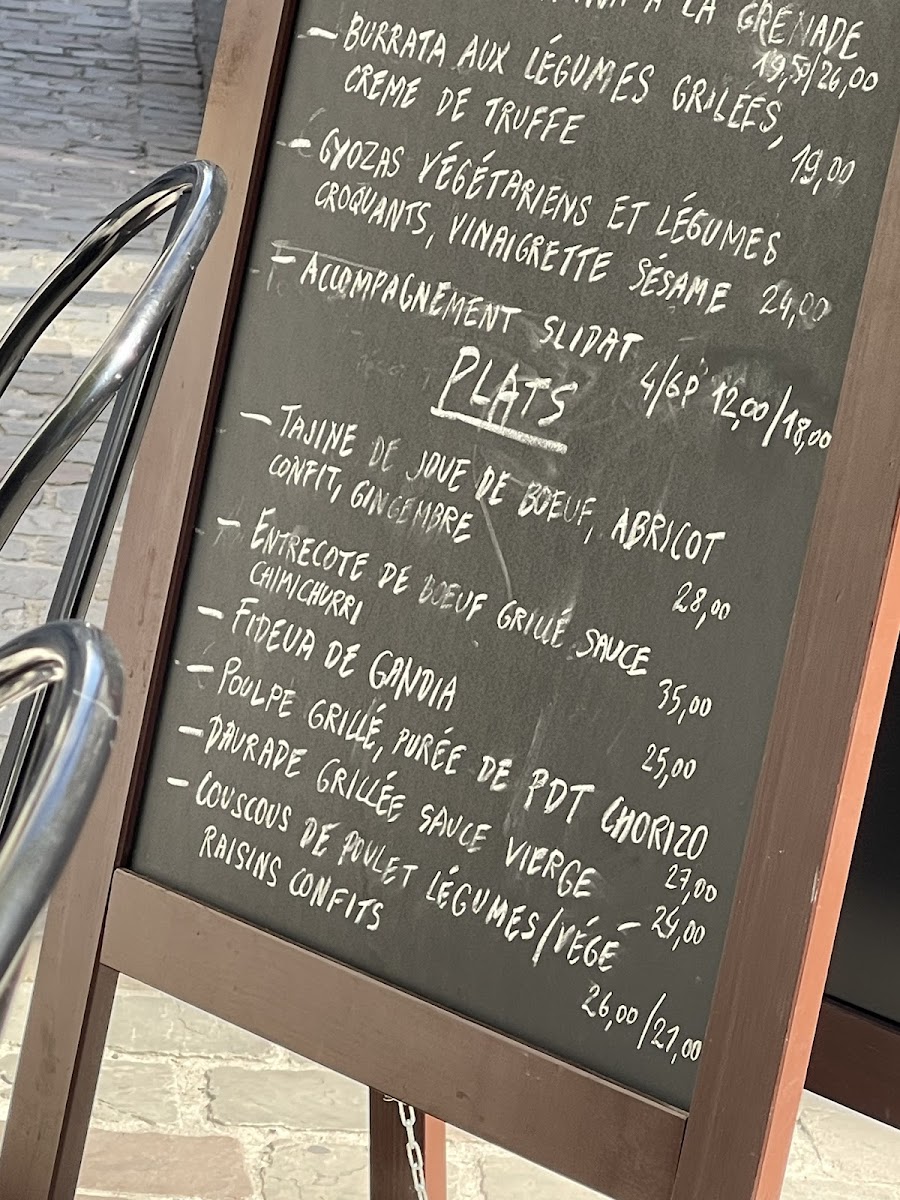 À LA GRENADE
19,50/26,00
– BURRATA AUX LÉGUMES GRILÉES,
CREME DE TRUFFE 19,00
– GYOZAS VÉGÉTARIENS ET LÉGUMES
CROQUANTS, VINAIGRETTE SÉSAME 24,00
– ACCOMPAGNEMENT SLIDAT 4/6P 12,00/18,00
PLATS
– TAJINE DE JOUE DE BOEUF, ABRICOT
CONFIT, GINGEMBRE 28,00
– ENTRECOTE DE BOEUF GRILLÉ SAUCE
CHIMICHURRI 35,00
– FIDEUA DE GANDIA 25,00
– POULPE GRILLÉ, PURÉE DE PDT CHORIZO 27,00
– DAURADE GRILLÉE SAUCE VIERGE 24,00
– COUSCOUS DE POULET LÉGUMES/VÉGÉ
RAISINS CONFITS 26,00/21,00